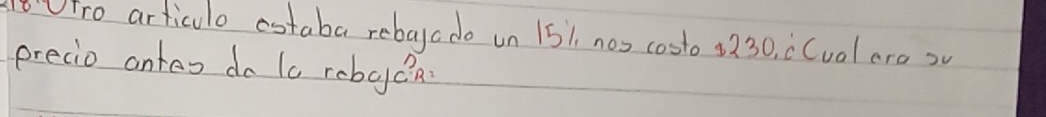 18. Otro articulo estaba rebajado un 15% nos costo $230, ¿Cual era su
precio antes de la rebaja? R: